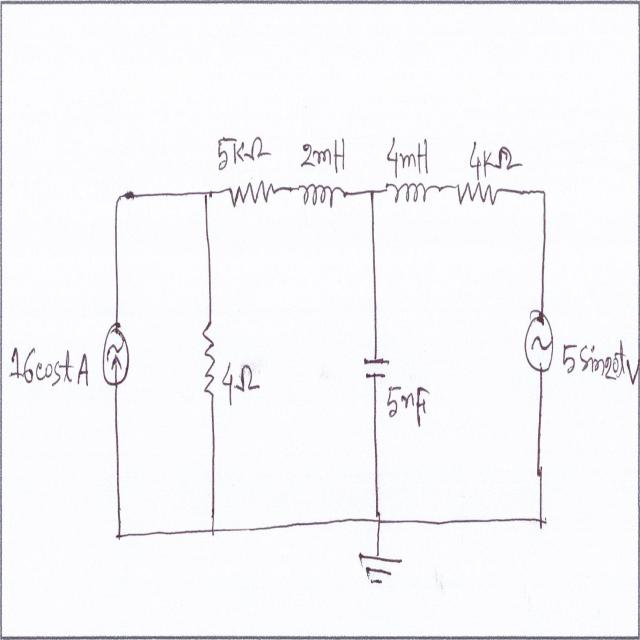 5KΩ 2mH 4mH 4KΩ
16cost A
4Ω
5nF
5sin20t V